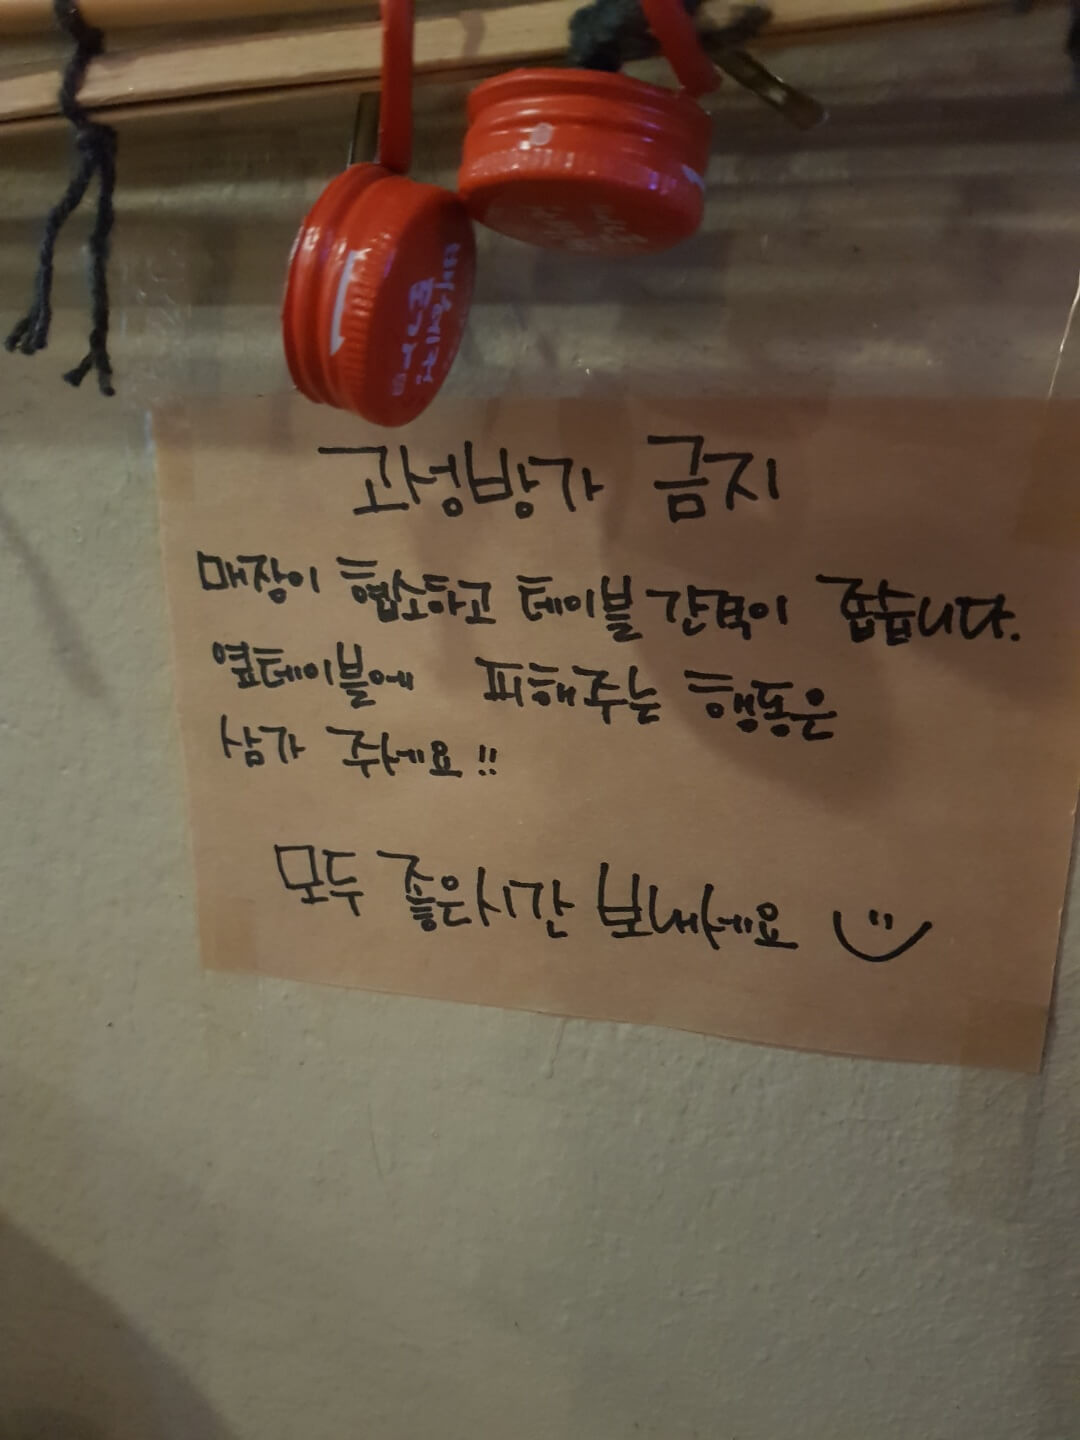 고성방가 금지
매장이 협소하고 테이블 간격이 좁습니다.
옆테이블에 피해주는 행동은
삼가 주세요!!
모두 좋은시간 보내세요